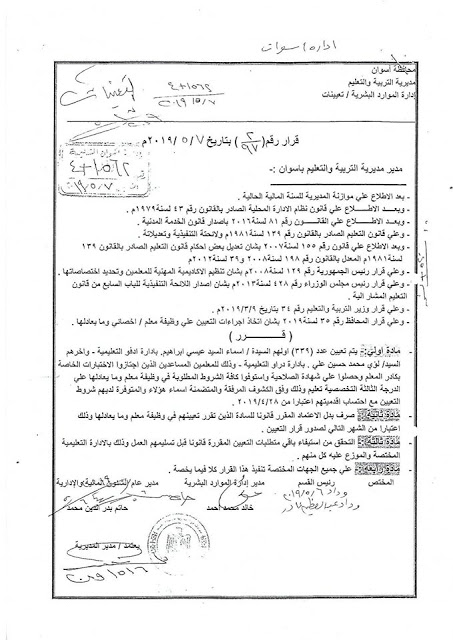 ادارة اسوان
محافظة أسوان
مديرية التربية والتعليم
إدارة الموارد البشرية / تعيينات
التعيينات
٤+١٥٦٢
٢٠١٩/٥/٧
قرار رقم (٢/٩٧) بتاريخ ٥/٧ /٢٠١٩م
٤+١٥٦٢
١٩/٥/٧
مدير مديرية التربية والتعليم باسوان :-
- بعد الاطلاع علي موازنة المديرية للسنة المالية الحالية .
- وبعد الاطلاع علي قانون نظام الادارة المحلية الصادر بالقانون رقم ٤٣ لسنة ١٩٧٩م
- وبعد الاطلاع علي القانون رقم ٨١ لسنة ٢٠١٦ باصدار قانون الخدمة المدنية .
- وعلي قانون التعليم الصادر بالقانون رقم ١٣٩ لسنة ١٩٨١م ولائحتة التنفيذية وتعديلاتة .
- بعد الاطلاع علي قانون رقم ١٥٥ لسنة ٢٠٠٧ بشان تعديل بعض احكام قانون التعليم الصادر بالقانون ١٣٩
لسنة ١٩٨١م المعدل بالقانون رقم ١٩٨ لسنة ٢٠٠٨ و٣٩ لسنة ٢٠١٢م
- وعلي قرار رئيس الجمهورية رقم ١٢٩ لسنة ٢٠٠٨م بشان تنظيم الاكاديمية المهنية للمعلمين وتحديد اختصاصاتها .
- وعلي قرار رئيس مجلس الوزراء رقم ٤٢٨ لسنة ٢٠١٣م بشان اصدار اللائحة التنفيذية للباب السابع من قانون
التعليم المشار الية .
- وعلي قرار وزير التربية والتعليم رقم ٣٤ بتاريخ ٢٠١٩/٣/٩م .
- وعلي قرار المحافظ رقم ٣٥ لسنة ٢٠١٩ بشان اتخاذ اجراءات التعيين علي وظيفة معلم / اخصائي وما يعادلها .
( قـــرر )
- مادة اولي:- يتم تعيين عدد (٣٣٩) اولهم السيدة / اسماء السيد عيسي ابراهيم . بادارة ادفو التعليمية - واخرهم
السيد/ لؤي محمد حسين علي . بادارة دراو التعليمية - وذلك للمعلمين المساعدين الذين اجتازوا الاختبارات الخاصة
بكادر المعلم وحصلوا علي شهادة الصلاحية واستوفوا كافة الشروط المطلوبة في وظيفة معلم وما يعادلها علي
الدرجة الثالثة التخصصية تعليم وذلك وفق الكشوف المرفقة والمتضمنة اسماء هؤلاء والمتوفرة لديهم شروط
التعيين مع احتساب اقدميتهم اعتبارا من ٢٠١٩/٤/٢٨
- مادة ثانية:- صرف بدل الاعتماد المقرر قانونا للسادة الذين تقرر تعيينهم في وظيفة معلم وما يعادلها وذلك
اعتبارا من الشهر التالي لصدور قرار التعيين .
- مادة ثالثة:- التحقق من استيفاء باقي متطلبات التعيين المقررة قانونا قبل تسليمهم العمل وذلك بالادارة التعليمية
المختصة والموزع عليه كل منهم .
- مادة رابعة:- علي جميع الجهات المختصة تنفيذ هذا القرار كلا فيما يخصة .
المختص رئيس القسم مدير إدارة الموارد البشرية مدير عام الشئون المالية والإدارية
وداد ٢٠١٩/٥/٦
وداد عبدالعظيم
خالد محمد أحمد حاتم بدر الدين محمد
يعتمد / مدير المديرية